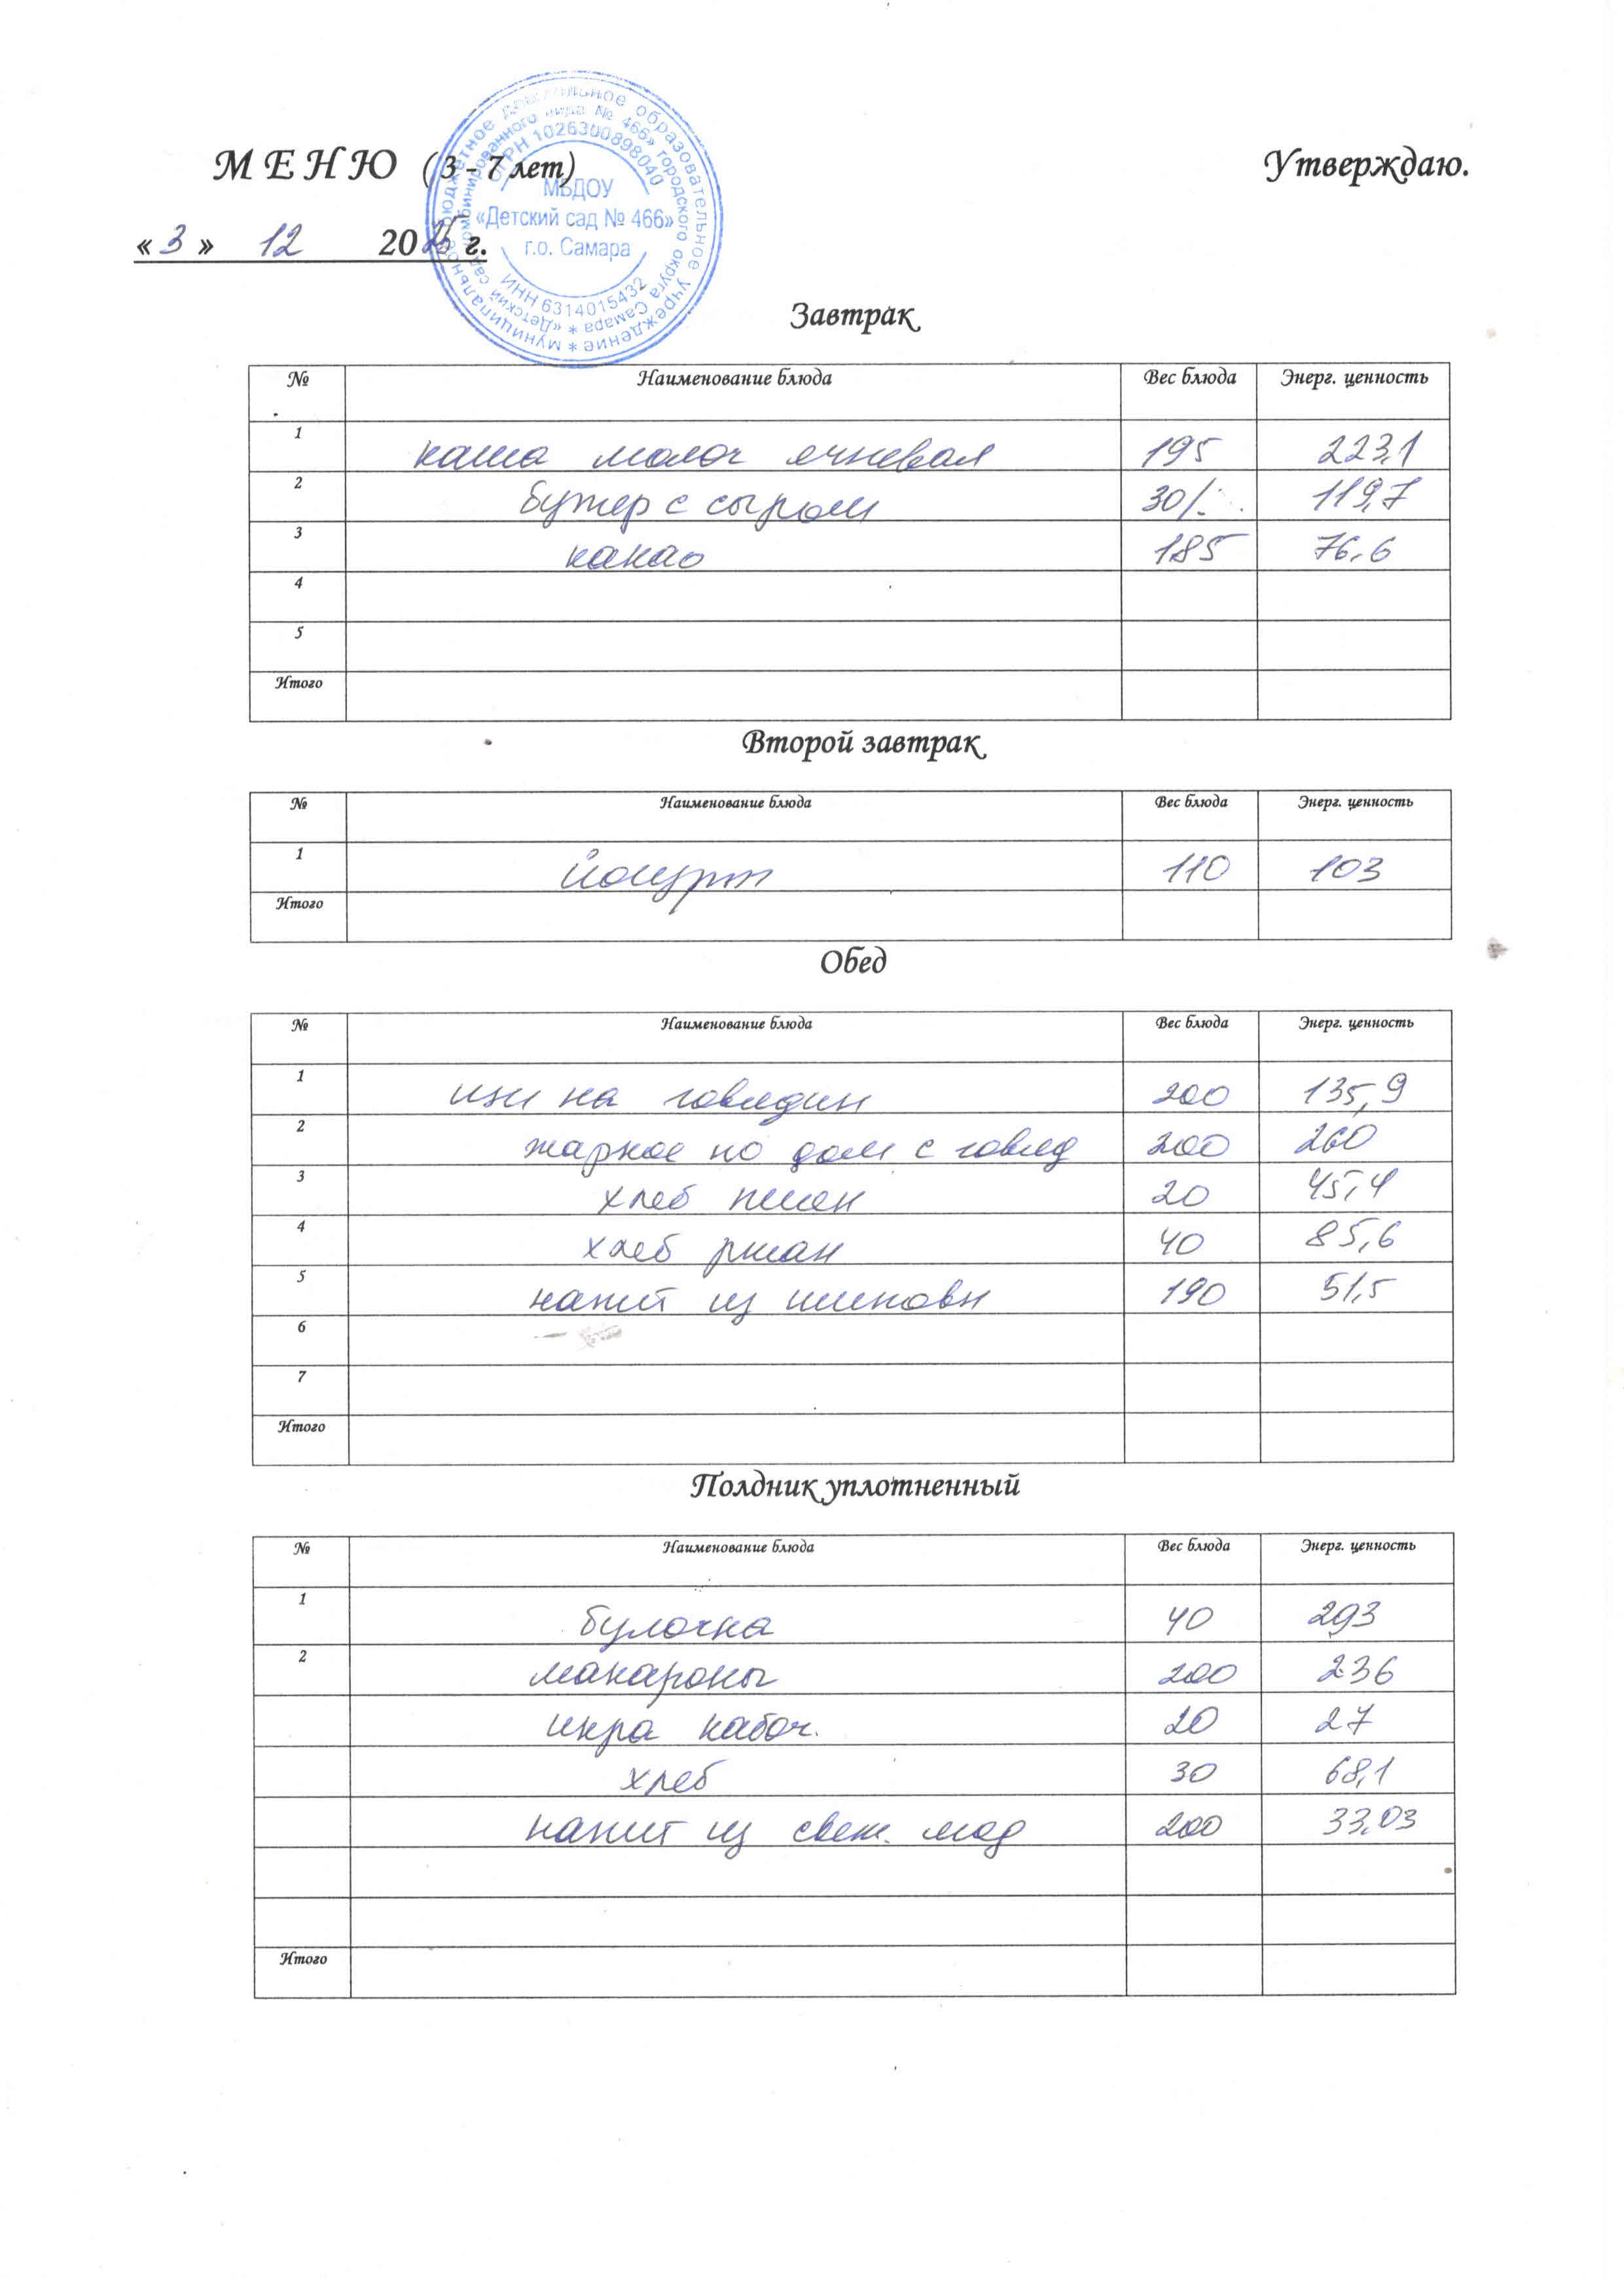 М Е Н Ю (3 - 7 лет) Утверждаю.
« 3 » 12 2025 г.
муниципальное бюджетное дошкольное образовательное учреждение *
«Детский сад комбинированного вида № 466» городского округа Самара *
ОГРН 1026300898040
МБДОУ
«Детский сад № 466»
г.о. Самара
ИНН 6314015432
Завтрак
№ Наименование блюда Вес блюда Энерг. ценность
1 каша молоч ячневая 195 223,1
2 бутер с сыром 30/ 119,7
3 какао 185 76,6
4
5
Итого
Второй завтрак
№ Наименование блюда Вес блюда Энерг. ценность
1 йогурт 110 103
Итого
Обед
№ Наименование блюда Вес блюда Энерг. ценность
1 щи на говядин 200 135,9
2 жаркое по дом с говяд 200 260
3 хлеб пшен 20 45,4
4 хлеб ржан 40 85,6
5 напит из шиповн 190 51,5
6
7
Итого
Полдник уплотненный
№ Наименование блюда Вес блюда Энерг. ценность
1 булочка 40 293
2 макароны 200 236
икра кабач. 20 27
хлеб 30 68,1
напит из свеж. яод 200 33,03
Итого